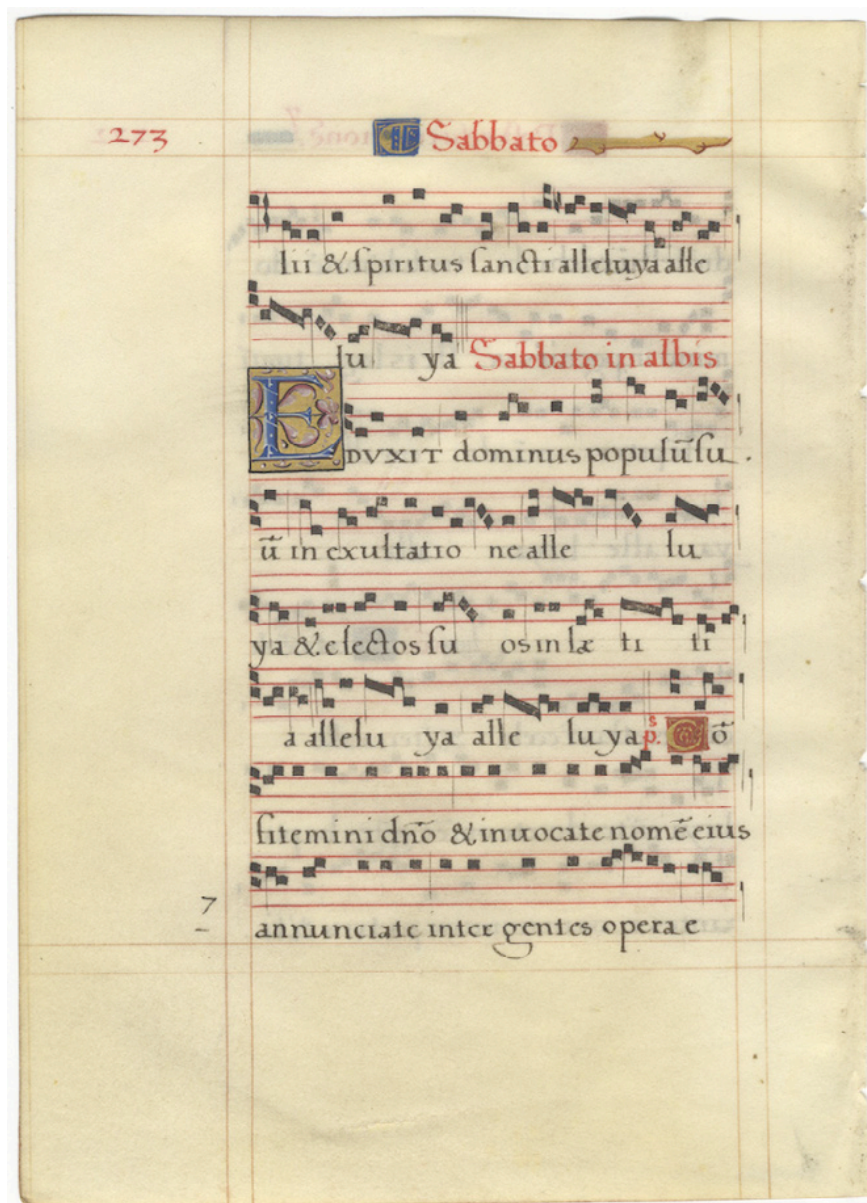 273 Sabbato
lii & spiritus sancti alleluya alle
lu ya Sabbato in albis
EDVXIT dominus populū su
ū in exultatio ne alle lu
ya & electos su os in læ ti ti
a allelu ya alle lu ya ps. Cō
fitemini dño & inuocate nomē eius
annunciate inter gentes opera e
7